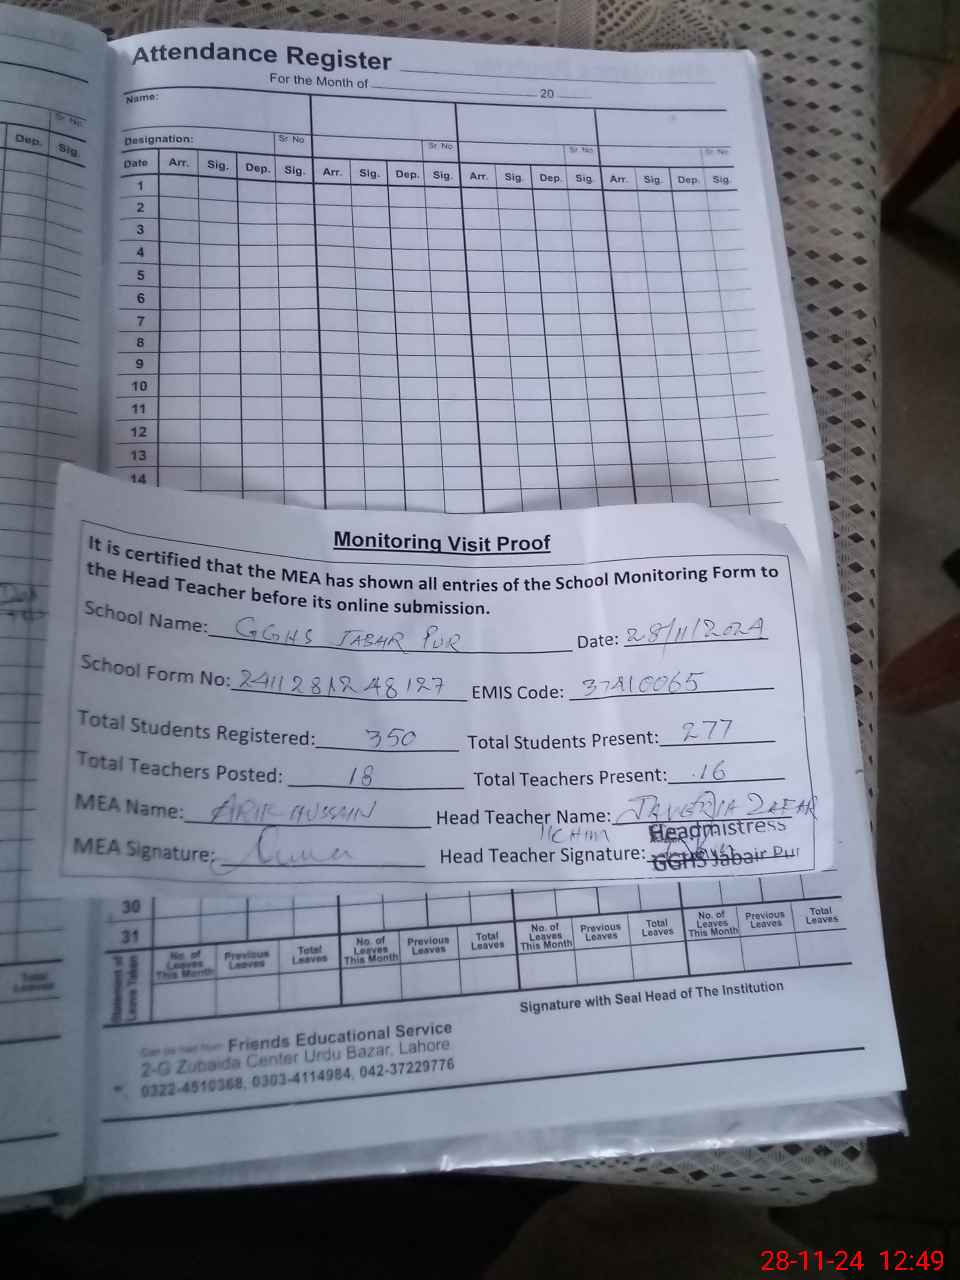 Attendance Register
For the Month of 20
Name:
Designation: Sr. No Sr. No Sr. No Sr. No
Date Arr. Sig. Dep. Sig. Arr. Sig. Dep. Sig. Arr. Sig. Dep. Sig. Arr. Sig. Dep. Sig.
Sr. No.
Dep. Sig.
1
2
3
4
5
6
7
8
9
10
11
12
13
14
Monitoring Visit Proof
It is certified that the MEA has shown all entries of the School Monitoring Form to
the Head Teacher before its online submission.
School Name: GGHS JABAR PUR Date: 28/11/2024
School Form No: 2411281248127 EMIS Code: 37210065
Total Students Registered: 350 Total Students Present: 277
Total Teachers Posted: 18 Total Teachers Present: 16
MEA Name: HUSSAIN Head Teacher Name: JAVERIA ZAFAR
MEA Signature: Head Teacher Signature:
Headmistress
GGHS Jabair Pur
30
31
Statement of Leave Taken
No. of Leaves This Month Previous Leaves Total Leaves No. of Leaves This Month Previous Leaves Total Leaves No. of Leaves This Month Previous Leaves Total Leaves No. of Leaves This Month Previous Leaves Total Leaves
Total Leaves
Signature with Seal Head of The Institution
Can be had from Friends Educational Service
2-G Zubaida Center Urdu Bazar, Lahore
0322-4510368, 0303-4114984, 042-37229776
28-11-24 12:49